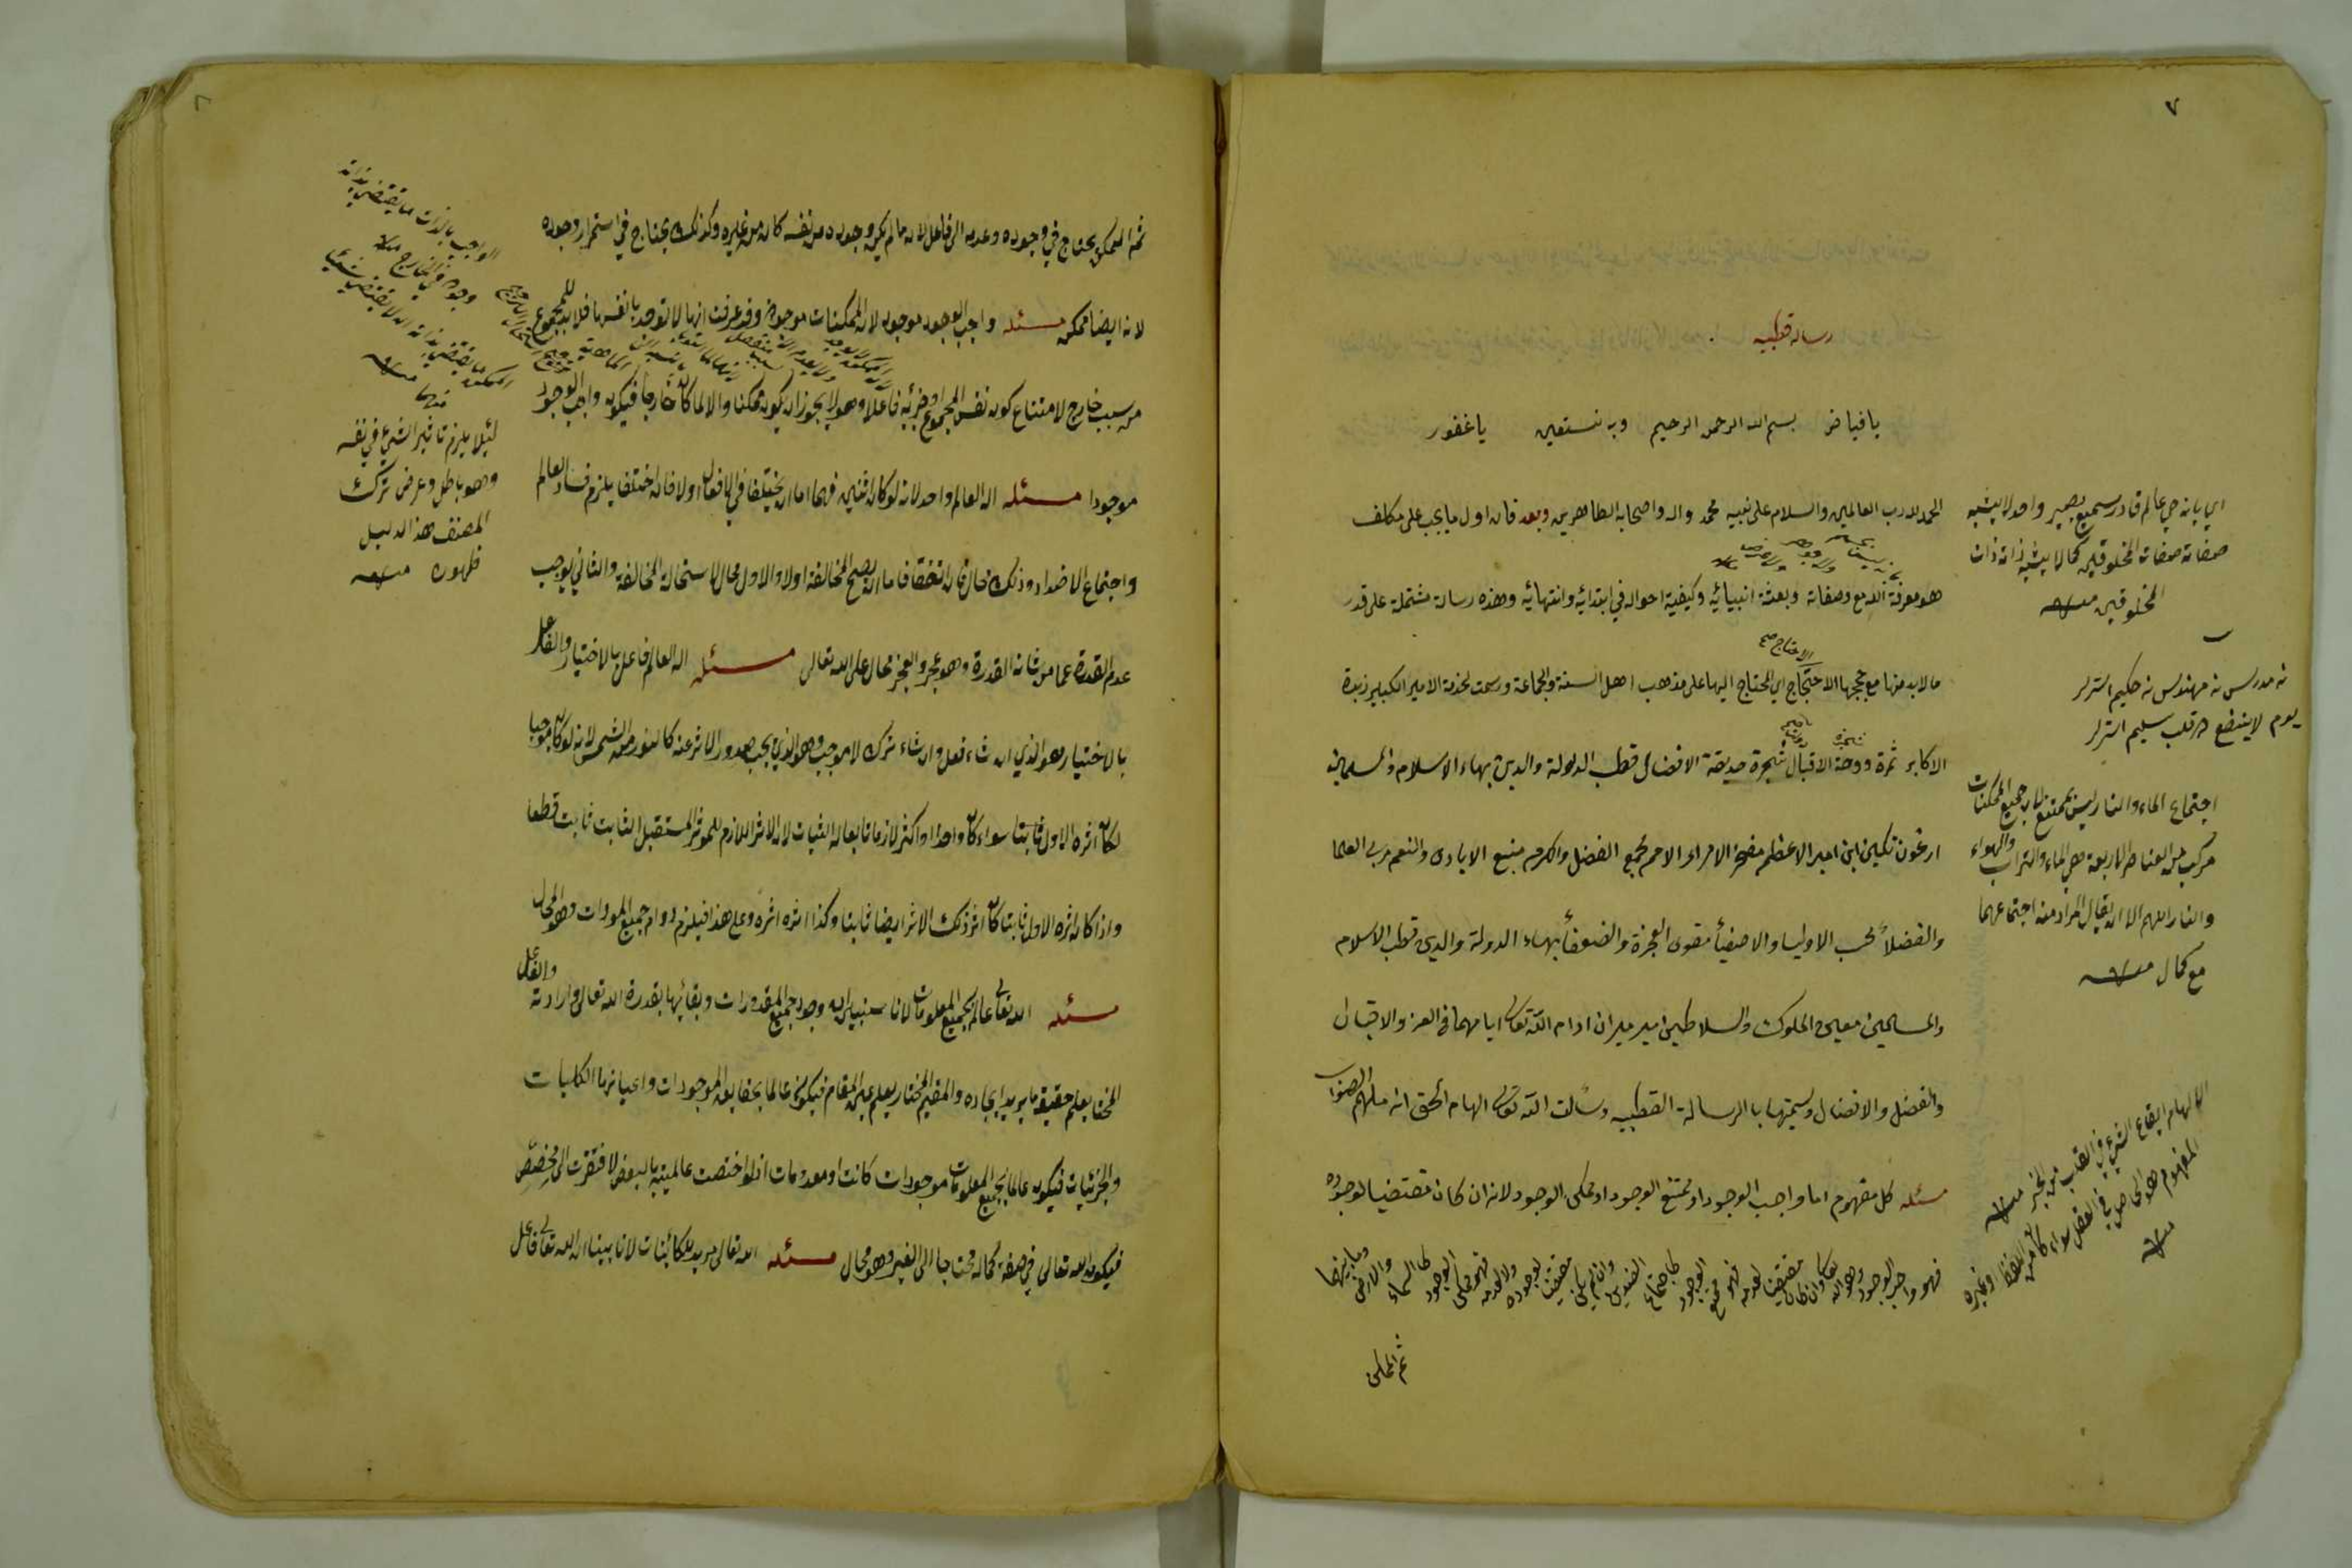 ٧
رساله قطبيه
يا فياض بسم الله الرحمن الرحيم وبه نستعين يا غفور
الحمد لله رب العالمين والسلام على نبيه محمد واله واصحابه الطاهرين وبعد فان اول ما يجب على مكلف
هو معرفة الله مع وصفاته وبعثة انبيائه وكيفية احواله في ابتدائه وانتهائه وهذه رسالة مشتملة على قدر
ما لا بد منها مع حججها الاحتجاج اي المحتاج اليها على مذهب اهل السنة والجماعة ورسمت لخدمة الامير الكبير زبدة
الاكابر ثمرة دوحة الاقبال شجرة حديقة الافضال قطب الدولة والدين بهاء الاسلام والمسلمين
ارغون تكين ابن امير الاعظم مفخر الامراء الاحم مجمع الفضل والكرم منبع الايادى والنعم مربى العلما
والفضلاء محب الاوليا والاصفيأ مقوى العجزة والضعفأ بهاء الدولة والدين قطب الاسلام
والمسلمين معين الملوك والسلاطين امير ميران ادام الله تعالى ايامهما فى العز والاقبال
والفضل والافضال وسميتها بالرسالة القطبيه وسألت الله تعالى الهام الحق انه ملهم الصواب
مسئله كل مفهوم اما واجب الوجود او ممتنع الوجود او ممكن الوجود لانه ان كان مقتضيا لوجوده
فهو واجب الوجود وهو الله تعالى وان كان مقتضيا لعدمه فهو ممتنع الوجود كاجتماع الضدين وان لم يكن مقتضيا لوجوده ولا لعدمه فهو ممكن الوجود كالسماء والارض وما بينهما
ثم الممكن
اي بانه حي عالم قادر سميع بصير واحد لا يشبه
صفاته صفات المخلوقين كما لا يشبه ذاته ذات
المخلوقين منه
نه مدرس نه مهندس نه حكيم استرلر
يوم لا ينفع ده قلب سليم استرلر
اجتماع الماء والنار ليس بممتنع لان جميع الممكنات
مركب من العناصر الاربعة هي الماء والتراب والهواء
والنار اللهم الا ان يقال المراد منه اجتماعهما
مع كمال منه
الالهام ايقاع الشئ في القلب من الخير منه
المفهوم هو الحاصل في العقل سواء كان من اللفظ او غيره
منه
ثم الممكن يحتاج في وجوده وعدمه الى فاعل لانه ما لم يكن وجوده من نفسه كان من غيره وكذلك يحتاج في استمرار وجوده
لانه ايضا ممكن مسئله واجب الوجود موجود لان الممكنات موجودة وقد عرفت انها لا توجد بانفسها فلا بد للمجموع
من سبب خارج لامتناع كون نفس المجموع او جزئيه فاعلا وهو لا يجوز ان يكون ممكنا والا لما كان خارجا فيكون واجب الوجود
موجودا مسئله اله العالم واحد لانه لو كان اثنين فهما اما ان يختلفا في الافعال او لا فان اختلفا يلزم فساد العالم
واجتماع الاضداد وذلك محال وان اتفقا فاما ان يصح المخالفة او لا والاول محال لاستحالة المخالفة والثاني يوجب
عدم القدرة عما من شانه القدرة وهو عجز والعجز محال على الله تعالى مسئله اله العالم فاعل بالاختيار والفاعل
بالاختيار هو الذي ان شاء فعل وان شاء ترك لا موجب وهو الذي يجب صدور الاثر عنه كالنور من الشمس لانه لو كان موجبا
لكان اثره الاول ثابتا سواء كان واحدا او اكثر لازما تابعا له الثبات لان الاثر اللازم للموثر المستقبل الثابت ثابت قطعا
واذا كان اثره الاول ثابتا كان اثر ذلك الاثر ايضا ثابتا وكذا اثره اثره وعلى هذا فيلزم دوام جميع الموجودات وهو المحال
مسئله الله تعالى عالم بجميع المعلومات لانا سنبين ان وجود جميع المقدورات وبقائها بقدرة الله تعالى وارادته والفاعل
المختار يعلم حقيقة ما يريد ايجاده والمقيم المختار يعلم عين المقام فيكون عالما بحقايق الموجودات واعيانها الكليات
والجزئيات فيكون عالما بجميع المعلومات موجودات كانت او معدومات اذ لو اختصت عالميته بالبعض لافتقرت الى مخصّص
فيكون الله تعالى في صفة كماله محتاجا الى الغير وهو محال مسئله الله تعالى مريد للكائنات لانا بينا ان الله تعالى فاعل
الواجب بالذات ما يقتضي بذاته
وجوده في الخارج منه
الممكن ما يقتضي بذاته ان لا يقتضي شيئا
منهما منه
لئلا يلزم تاثير الشئ في نفسه
وهو باطل وغرض ترك
المصنف هذا الدليل
ظهوره منه